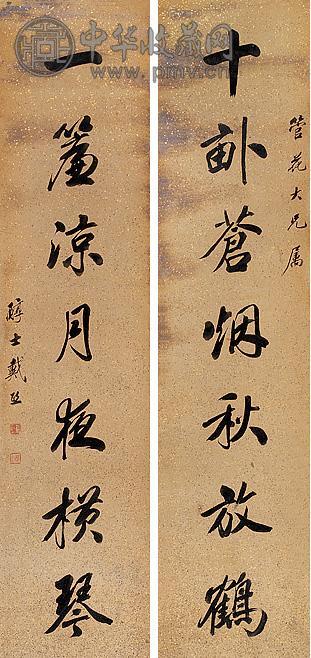 中华收藏网
www.pmv.cn
管花大兄属
十畝蒼烟秋放鶴
一簾涼月夜橫琴
醇士戴熙